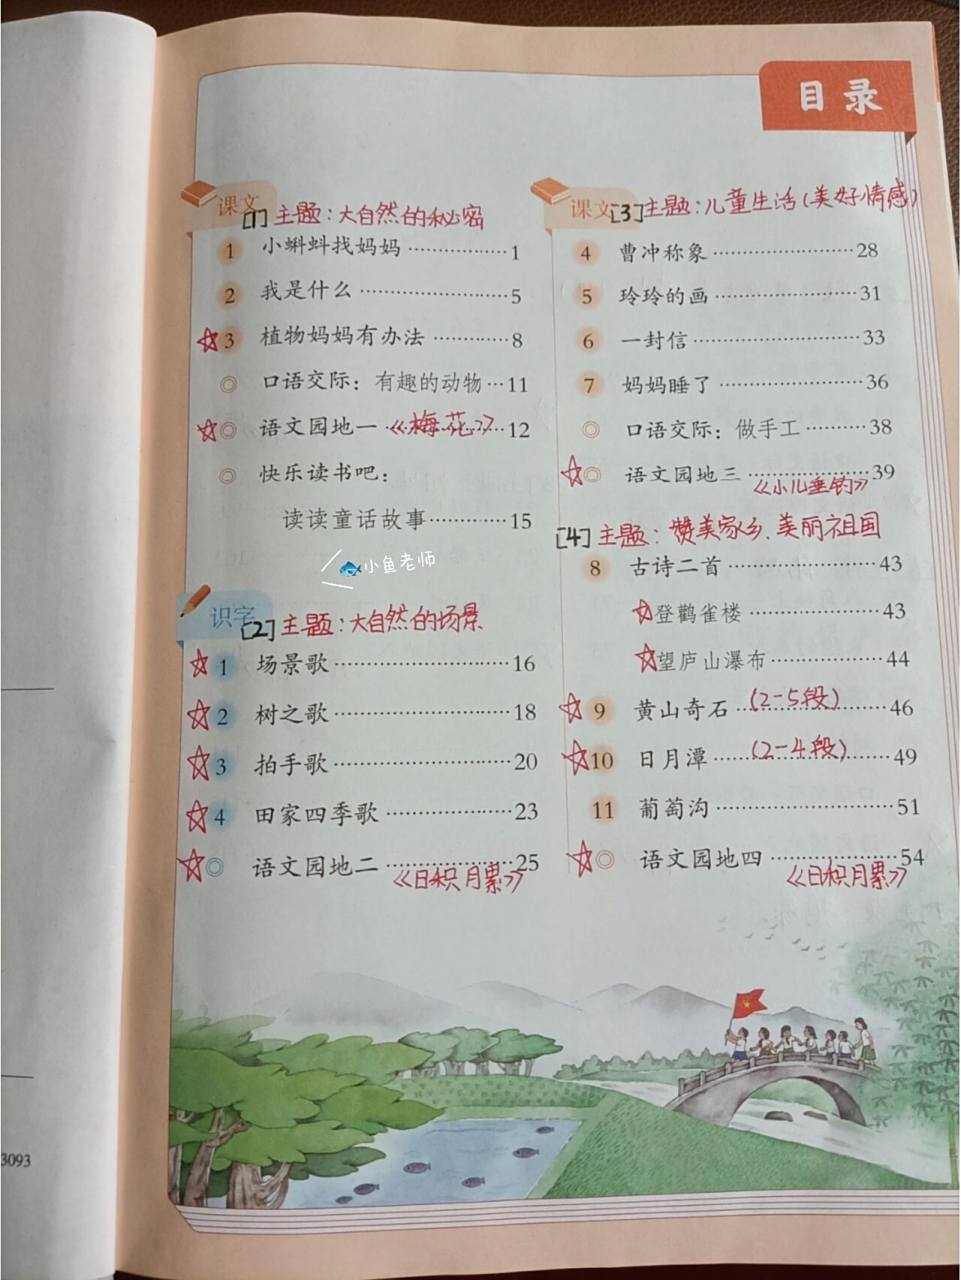 目录
课文 [1] 主题：大自然的秘密
1 小蝌蚪找妈妈 ……………… 1
2 我是什么 ……………… 5
☆ 3 植物妈妈有办法 ……………… 8
◎ 口语交际：有趣的动物 … 11
☆ ◎ 语文园地一 《梅花》 12
◎ 快乐读书吧：
读读童话故事 ………… 15
小鱼老师
识字 [2] 主题：大自然的场景
☆ 1 场景歌 ……………… 16
☆ 2 树之歌 ……………… 18
☆ 3 拍手歌 ……………… 20
☆ 4 田家四季歌 ……………… 23
☆ ◎ 语文园地二 ……………… 25
《日积月累》
课文 [3] 主题：儿童生活（美好情感）
4 曹冲称象 ……………… 28
5 玲玲的画 ……………… 31
6 一封信 ……………… 33
7 妈妈睡了 ……………… 36
◎ 口语交际：做手工 ………… 38
☆ ◎ 语文园地三 ……………… 39
《小儿垂钓》
[4] 主题：赞美家乡、美丽祖国
8 古诗二首 ……………… 43
☆ 登鹳雀楼 ……………… 43
☆ 望庐山瀑布 ……………… 44
☆ 9 黄山奇石 (2-5段) 46
☆ 10 日月潭 (2-4段) 49
11 葡萄沟 ……………… 51
☆ ◎ 语文园地四 ……………… 54
《日积月累》
3093